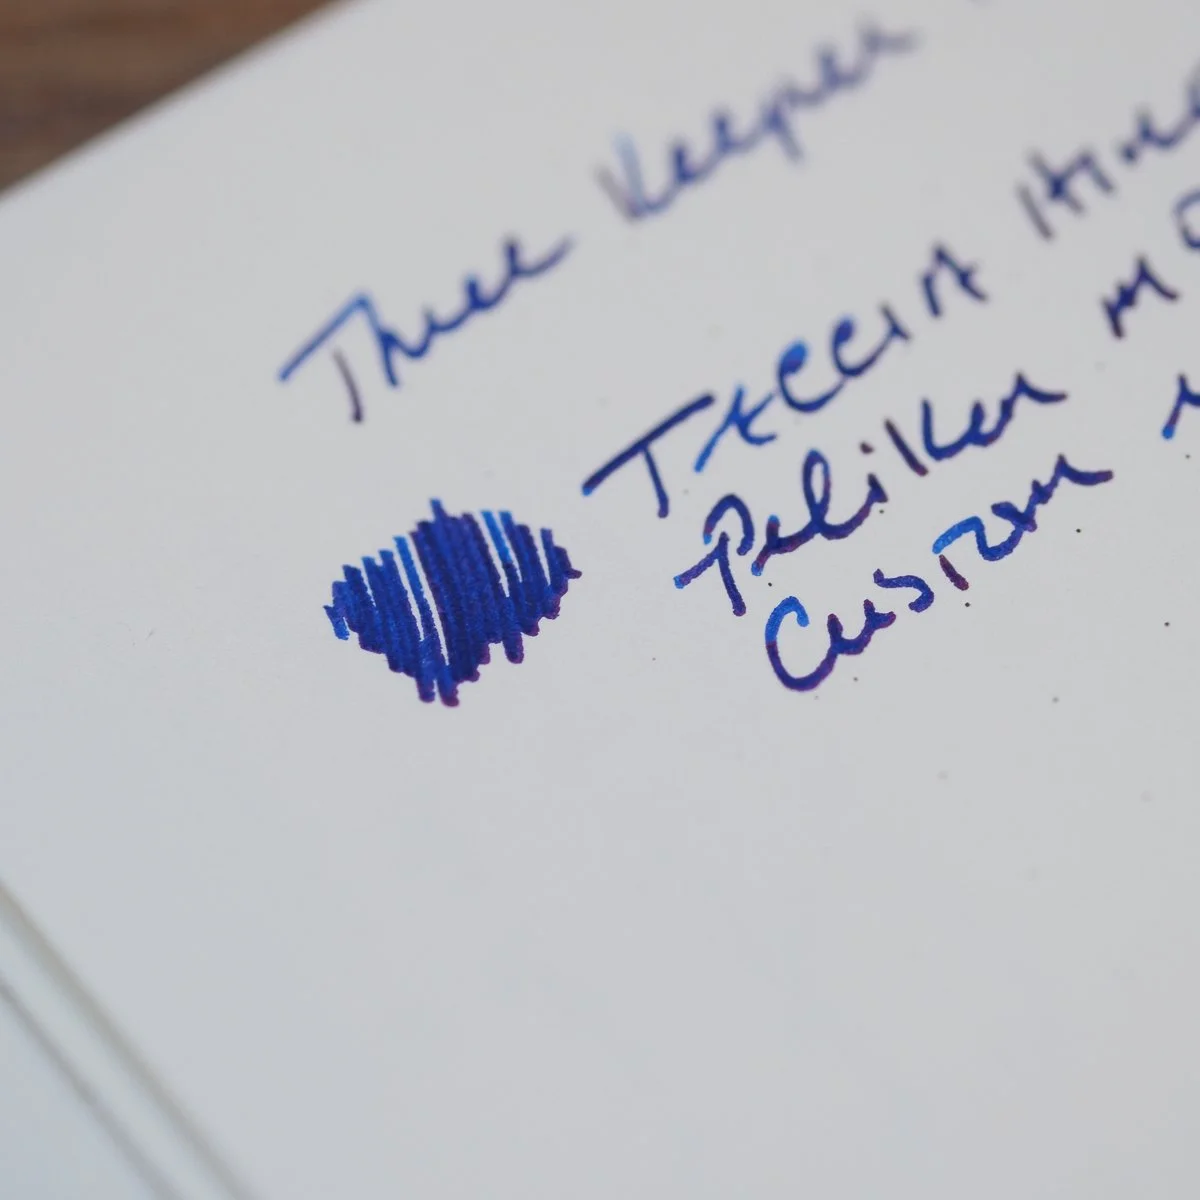 Three Keeper
TACCIA
Pelikan M
Custom